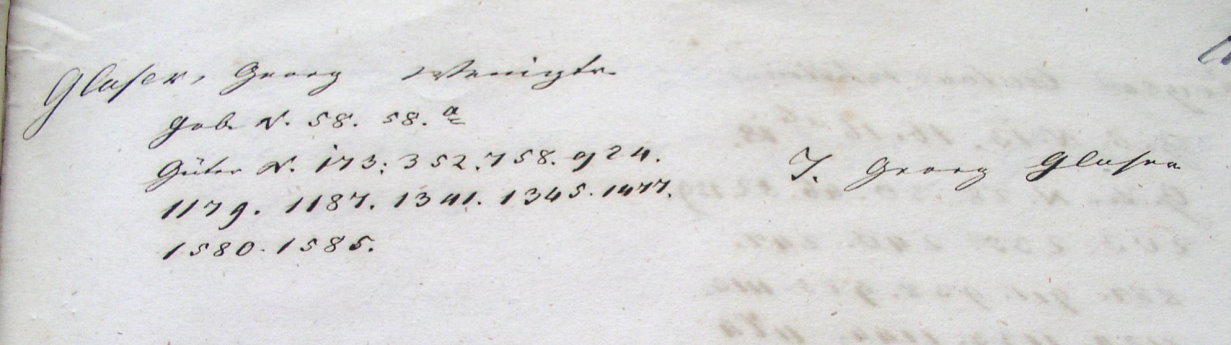 Glaser, Georg Wenigtr.
Geb. N. 58. 58.a
Güter N. 173. 352. 758. 924.
1179. 1187. 1341. 1345. 1477.
1580. 1585.
T. Georg Glaser